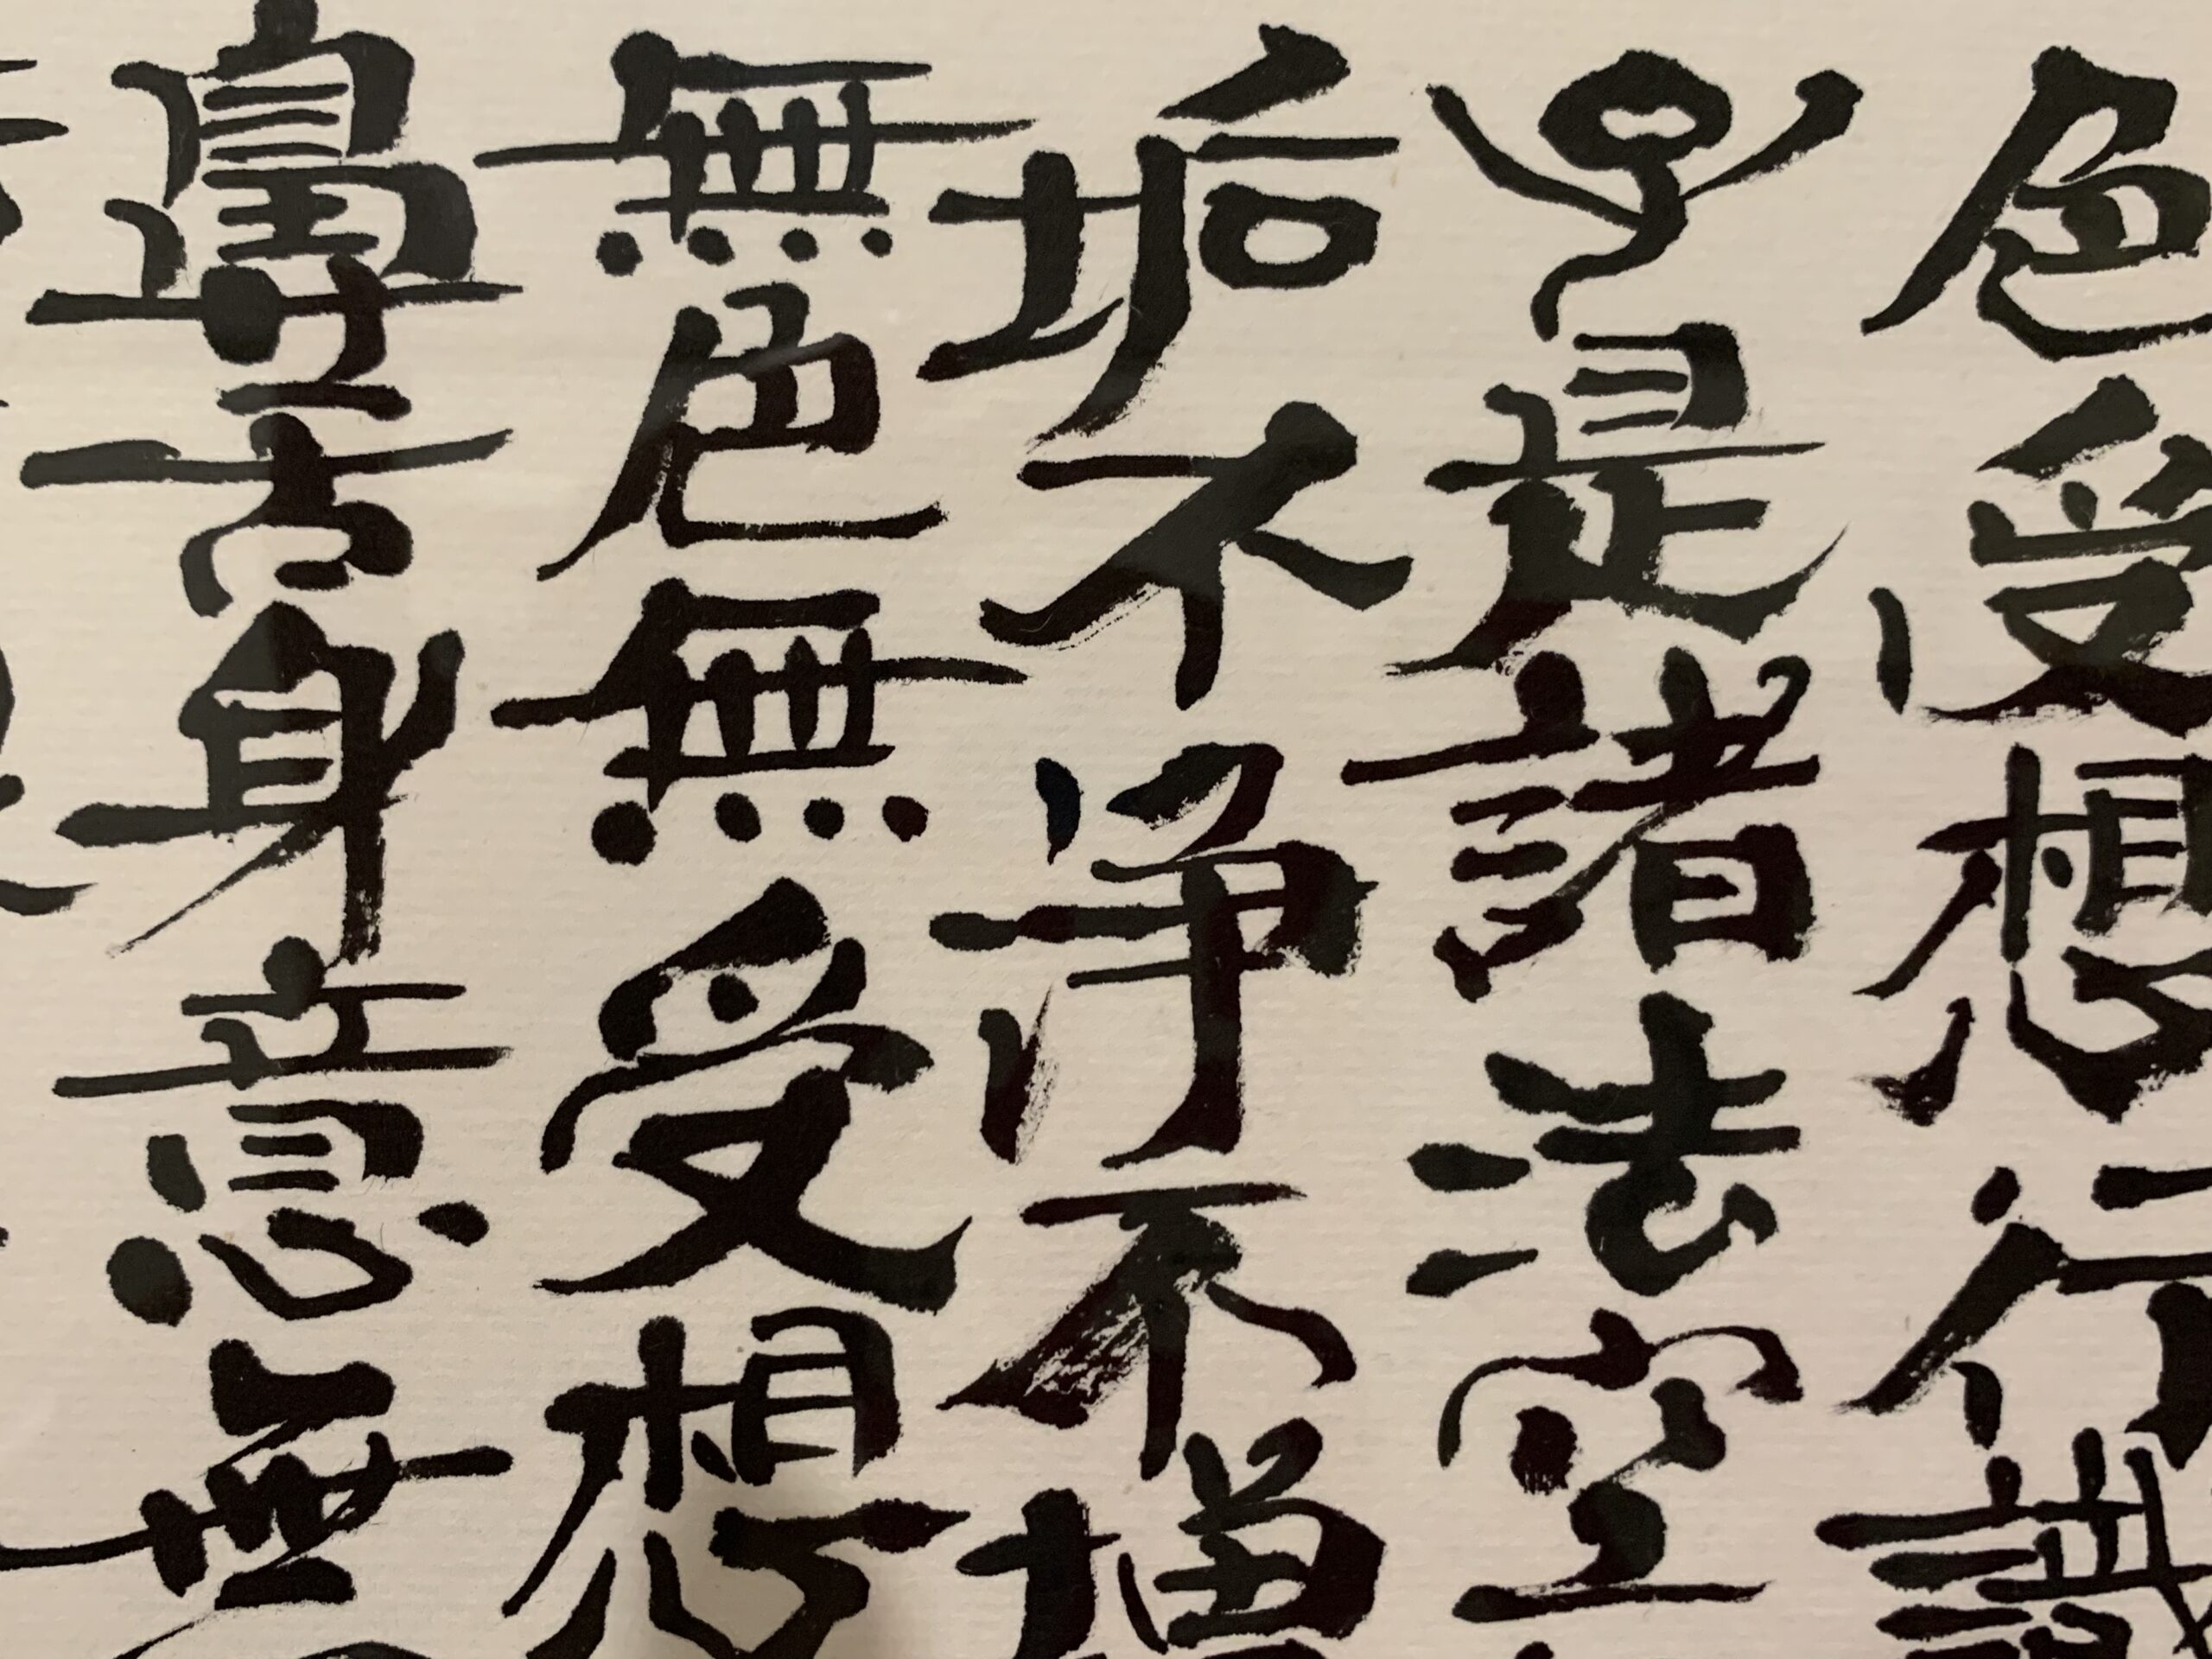 色受想行識
子是諸法空
垢不净不増
無色無受想
鼻舌身意無